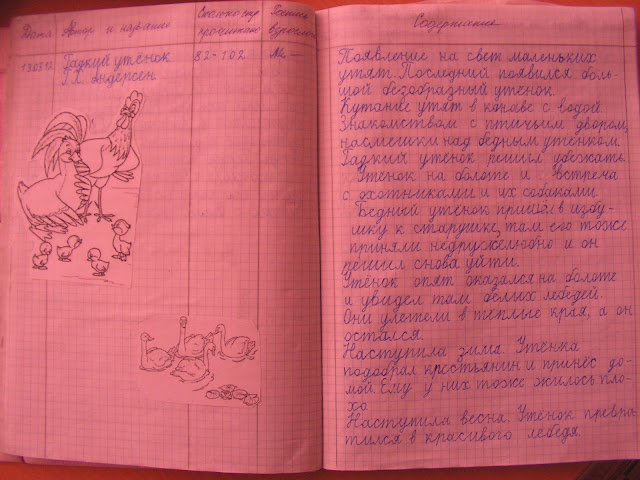 Дата
Автор и название
Сколько стр прочитано
13.03.12
Гадкий утёнок
Г.Х. Андерсен.
82-102
Содержание
Появление на свет маленьких
утят. Последний появился боль-
шой безобразный утёнок.
Купание утят в канаве с водой
Знакомством с птичьим двором,
насмешки над бедным утёнком
Гадкий утёнок решил убежать.
Утёнок на болоте и встреча
с охотниками и их собаками.
Бедный утёнок пришёл в избу-
шку к старушке, там его тоже
приняли недружелюбно и он
решил снова уйти.
Утёнок опят оказался на болоте
и увидел там белых лебедей.
Они улетели в тёплые края, а он
остался.
Наступила зима. Утёнка
подобрал крестьянин и принёс до-
мой. Ему у них тоже жилось пло-
хо.
Наступила весна. Утёнок превра
тился в красивого лебедя.